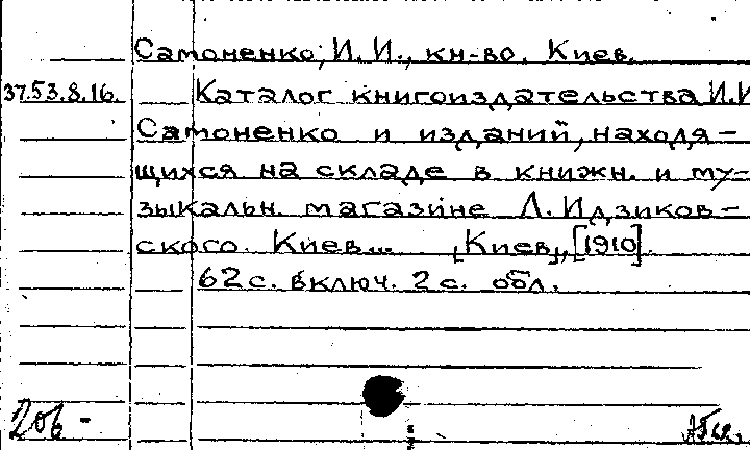 Самоненко, И. И., кн-во. Киев.
37.53.8.16. Каталог книгоиздательства И.И
Самоненко и изданий, находя-
щихся на складе в книжн. и му-
зыкальн. магазине Л. Идзиков-
ского. Киев... [Киев], [1910].
62 с. включ. 2 с. обл.
206 -